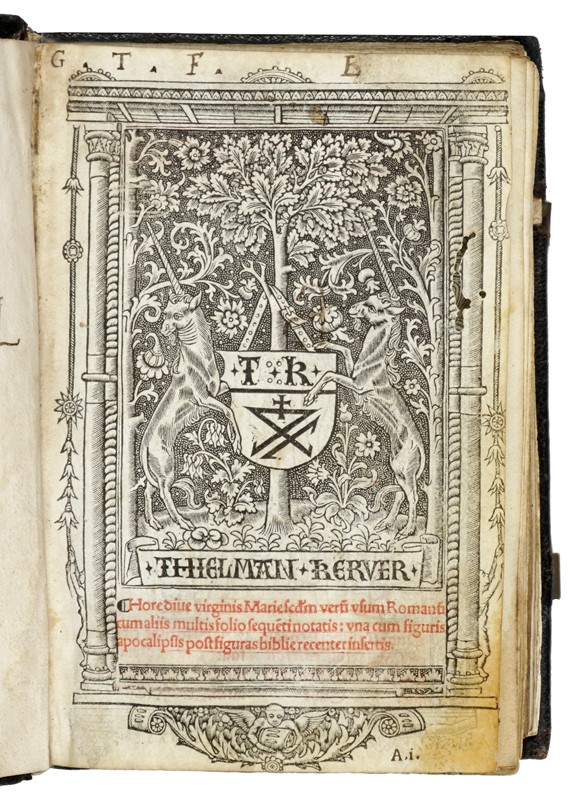 G. T. F. E
T R
THIELMAN KERVER
¶Hore diue virginis Marie scd̃m verũ vsum Romanũ
cum aliis multis folio sequẽti notatis : vna cum figuris
apocalipsis post figuras biblie recenter insertis.
A.i.